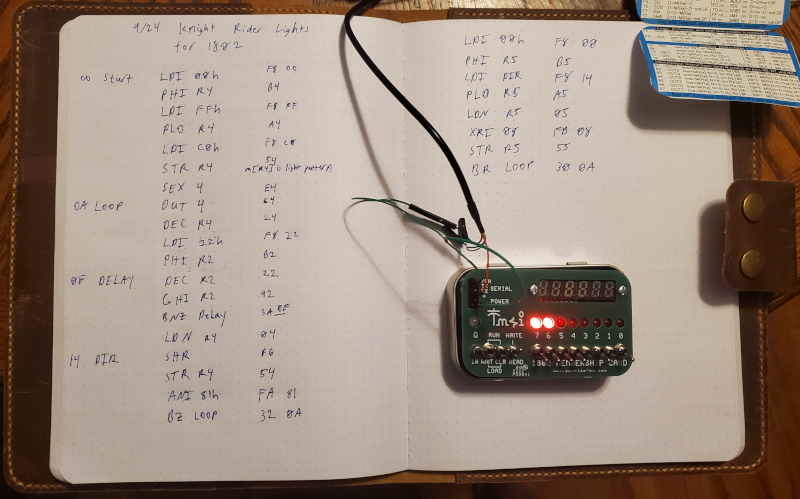 9/24 Knight Rider Lights
for 1802
00 Start LDI 00h F8 00
PHI R4 B4
LDI FFh F8 FF
PLO R4 A4
LDI C0h F8 C0
STR R4 54 M[R4] is light pattern
SEX 4 E4
0A LOOP OUT 4 64
DEC R4 24
LDI 22h F8 22
PHI R2 B2
0F DELAY DEC R2 22
GHI R2 92
BNZ Delay 3A 0F
LDN R4 04
14 DIR SHR F6
STR R4 54
ANI 81h FA 81
BZ LOOP 32 0A
LDI 00h F8 00
PHI R5 B5
LDI DIR F8 14
PLO R5 A5
LDN R5 05
XRI 08 FB 08
STR R5 55
BR LOOP 30 0A
SERIAL
POWER
Tmsi
Q RUN WRITE 7 6 5 4 3 2 1 0
IN WAIT CLR READ 1802 MEMBERSHIP CARD
LOAD